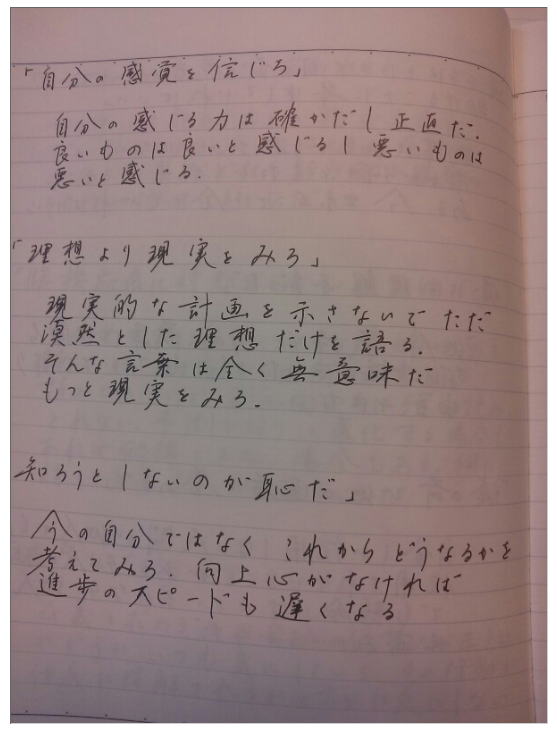 「自分の感覚を信じろ」
自分の感じる力は確かだし正直だ.
良いものは良いと感じるし悪いものは
悪いと感じる.
「理想より現実をみろ」
現実的な計画を示さないでただ
漠然とした理想だけを語る.
そんな言葉は全く無意味だ
もっと現実をみろ.
知ろうとしないのが恥だ」
今の自分ではなくこれからどうなるかを
考えてみろ.向上心がなければ
進歩のスピードも遅くなる